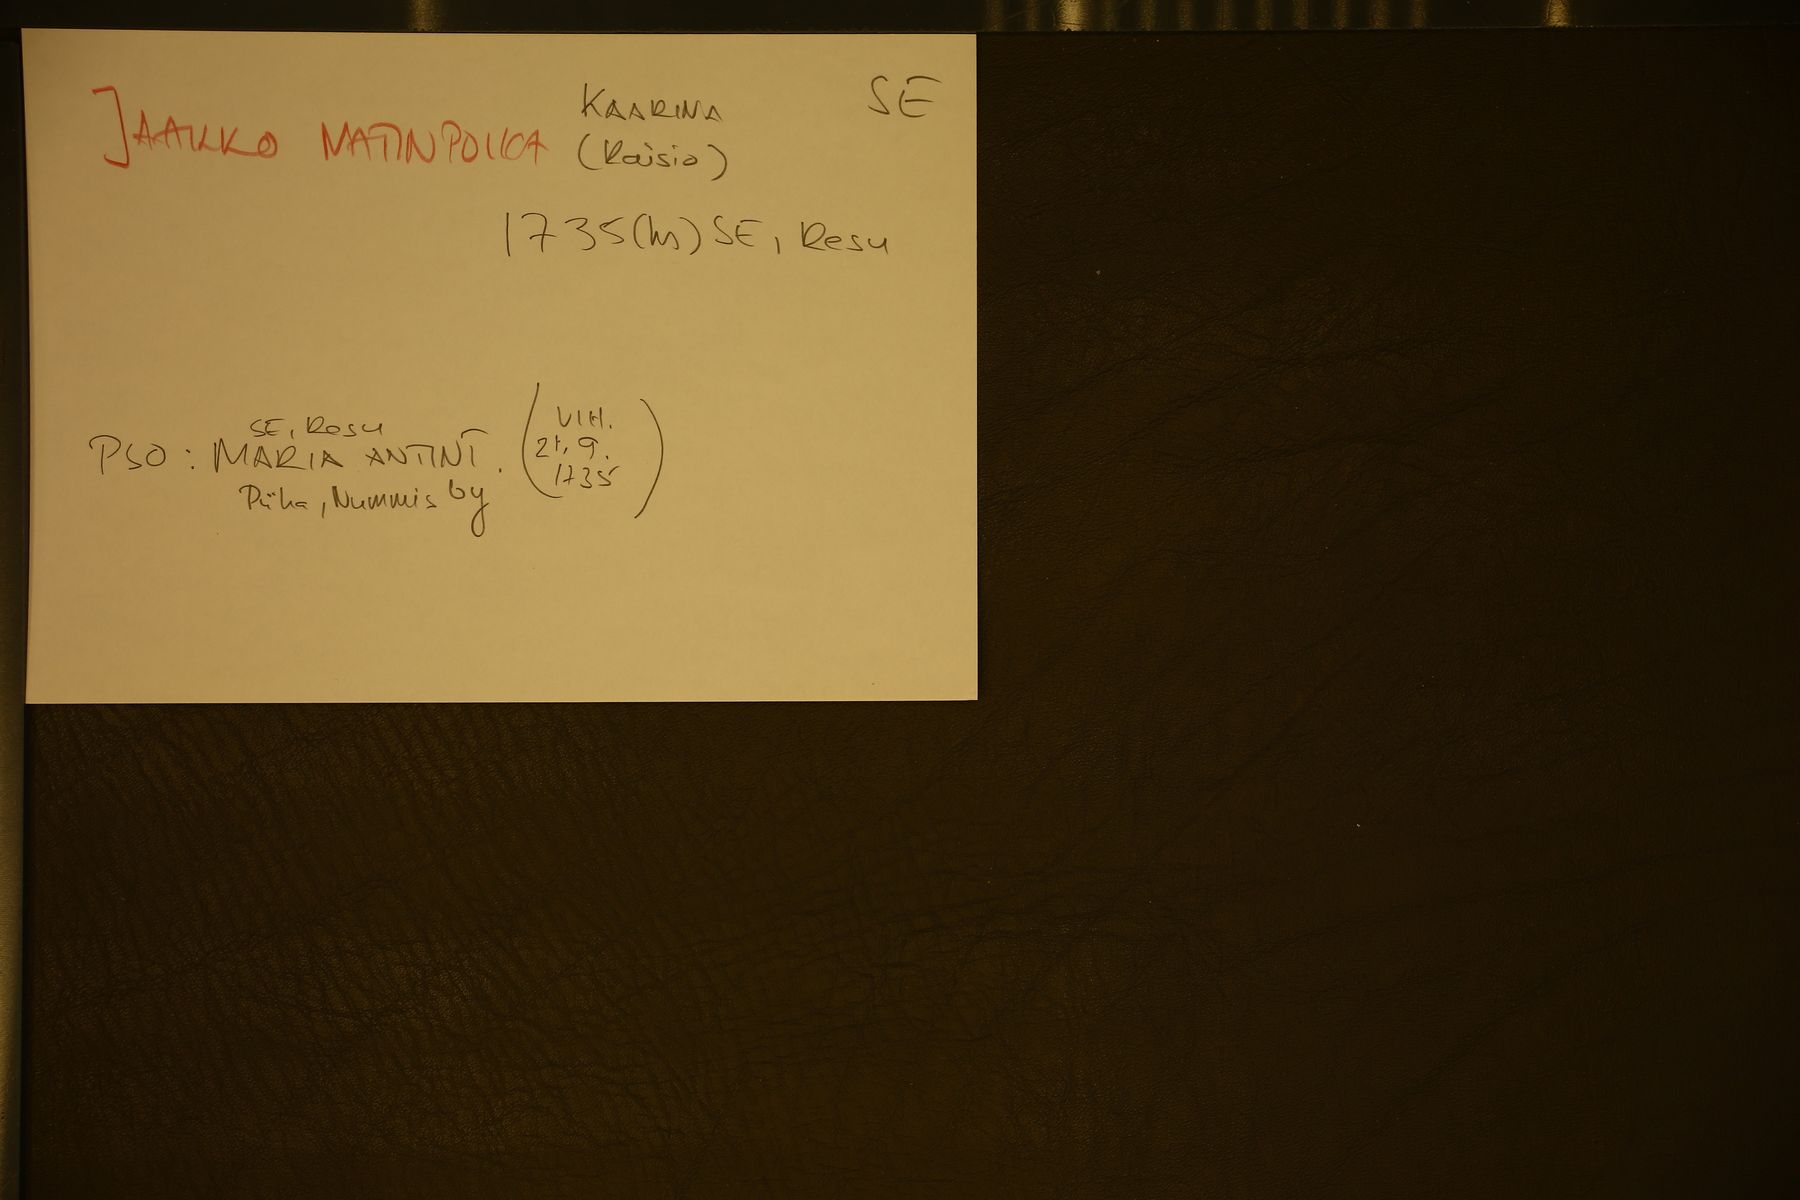 SE
KAARINA
JAAKKO MATINPOIKA (Raisio)
1735 (hs) SE, Resu
SE, Resu
PSO: MARIA ANTINT. (VIH. 21.9. 1735)
Piiha, Nummis by